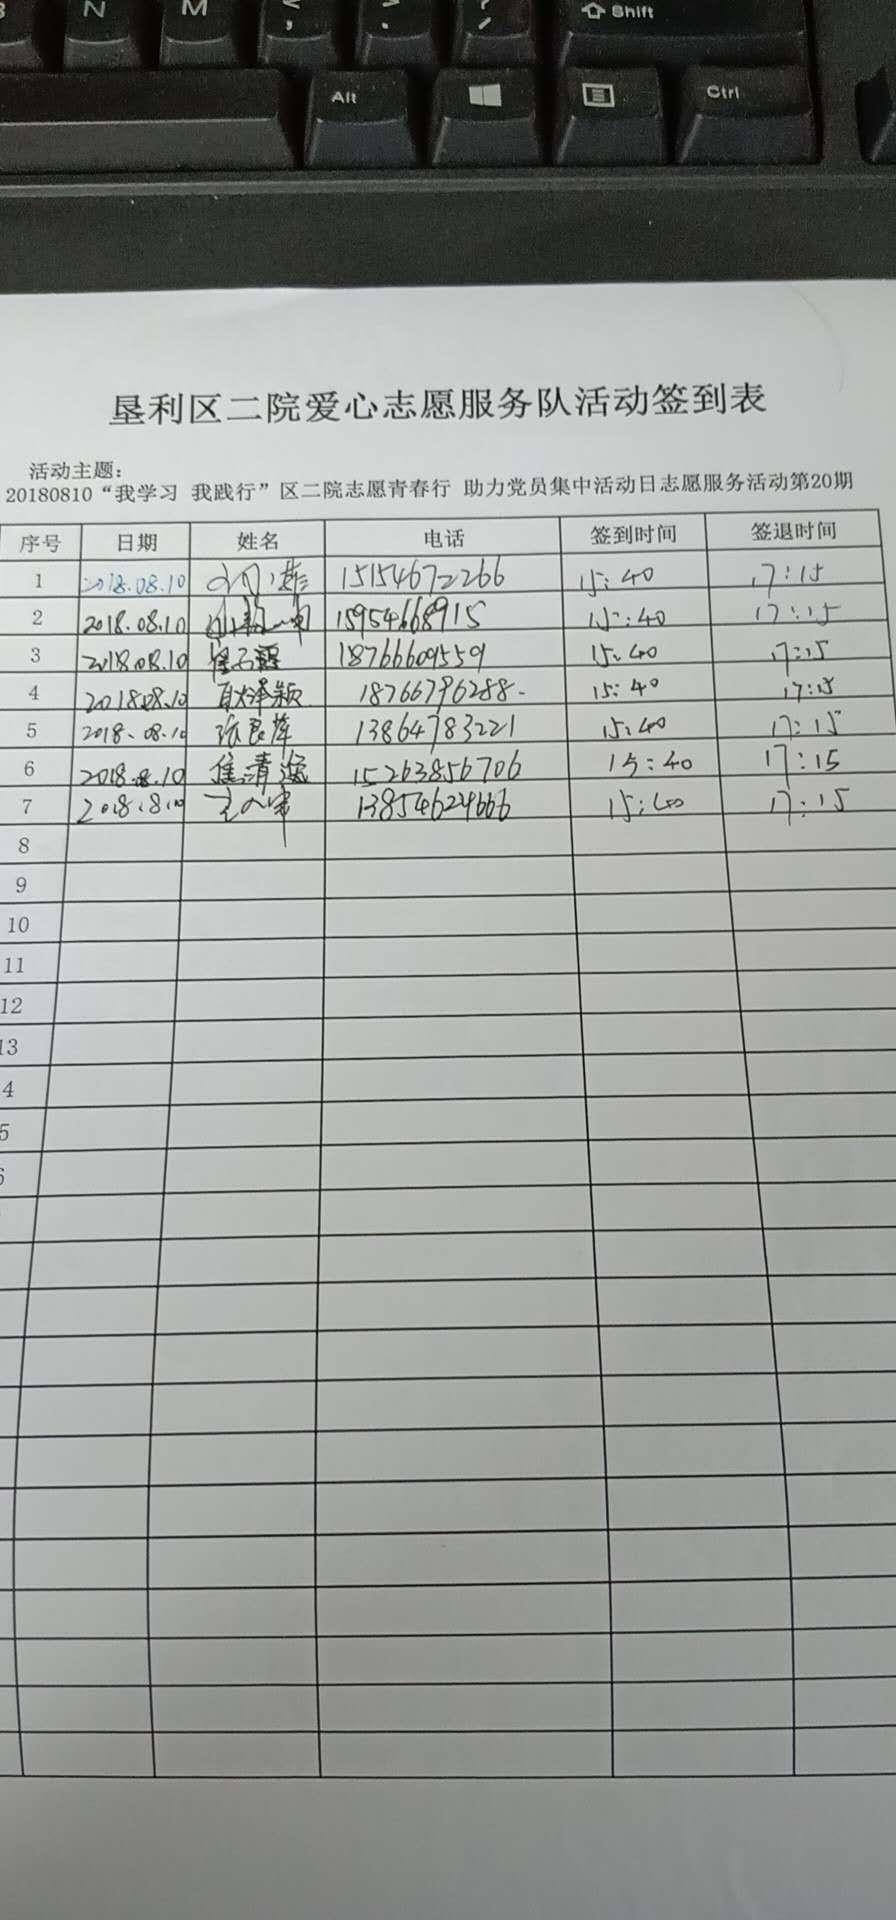 N M < , > . ? / Shift
Alt Ctrl
垦利区二院爱心志愿服务队活动签到表
活动主题:
20180810“我学习 我践行”区二院志愿青春行 助力党员集中活动日志愿服务活动第20期
序号 日期 姓名 电话 签到时间 签退时间
1 2018.08.10 15154672266 15:40 17:15
2 2018.08.10 15954668915 15:40 17:15
3 2018.08.10 18766609559 15:40 17:15
4 2018.08.10 18766796288. 15:40 17:15
5 2018.08.10 张良萍 13864783221 15:40 17:15
6 2018.8.10 焦清海 15263856706 15:40 17:15
7 2018.8.10 13854624666 15:40 17:15
8
9
10
11
12
13
4
5